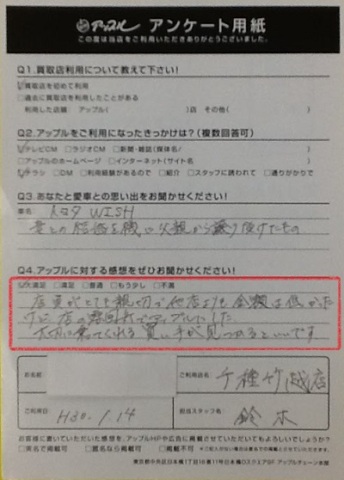 アップル アンケート用紙
この度は当店をご利用いただきありがとうございました。
Q1.買取店利用について教えて下さい!
☑買取店を初めて利用
□過去に買取店を利用したことがある
利用した店舗 アップル( )店 その他( )
Q2.アップルをご利用になったきっかけは?(複数回答可)
☑テレビCM □ラジオCM □新聞・雑誌(媒体名/ )
□アップルのホームページ □インターネット(サイト名 )
☑チラシ □DM □利用経験があるので □紹介 □スタッフに誘われて □通りがかりで
Q3.あなたと愛車との思い出をお聞かせください!
車名/ トヨタ WISH
妻との結婚を機に父親から譲り受けたもの
Q4.アップルに対する感想をぜひお聞かせください!
☑大満足 □満足 □普通 □もう少し □不満
店員がとても親切で他店よりも金額は低かった
けど、店の雰囲気でアップルにした
大切に乗ってくれる買い手が見つかるといいです
お名前
ご利用店名 千種竹越店
ご利用日 H30.1.14
担当スタッフ名 鈴木
お客様に書いていただいた感想を、アップルHPや広告に掲載させていただいてもよろしいでしょうか?
□実名で掲載可 □匿名で掲載可 □掲載不可
東京都中央区日本橋1丁目16番11号日本橋Dスクエア5F アップルチェーン本部